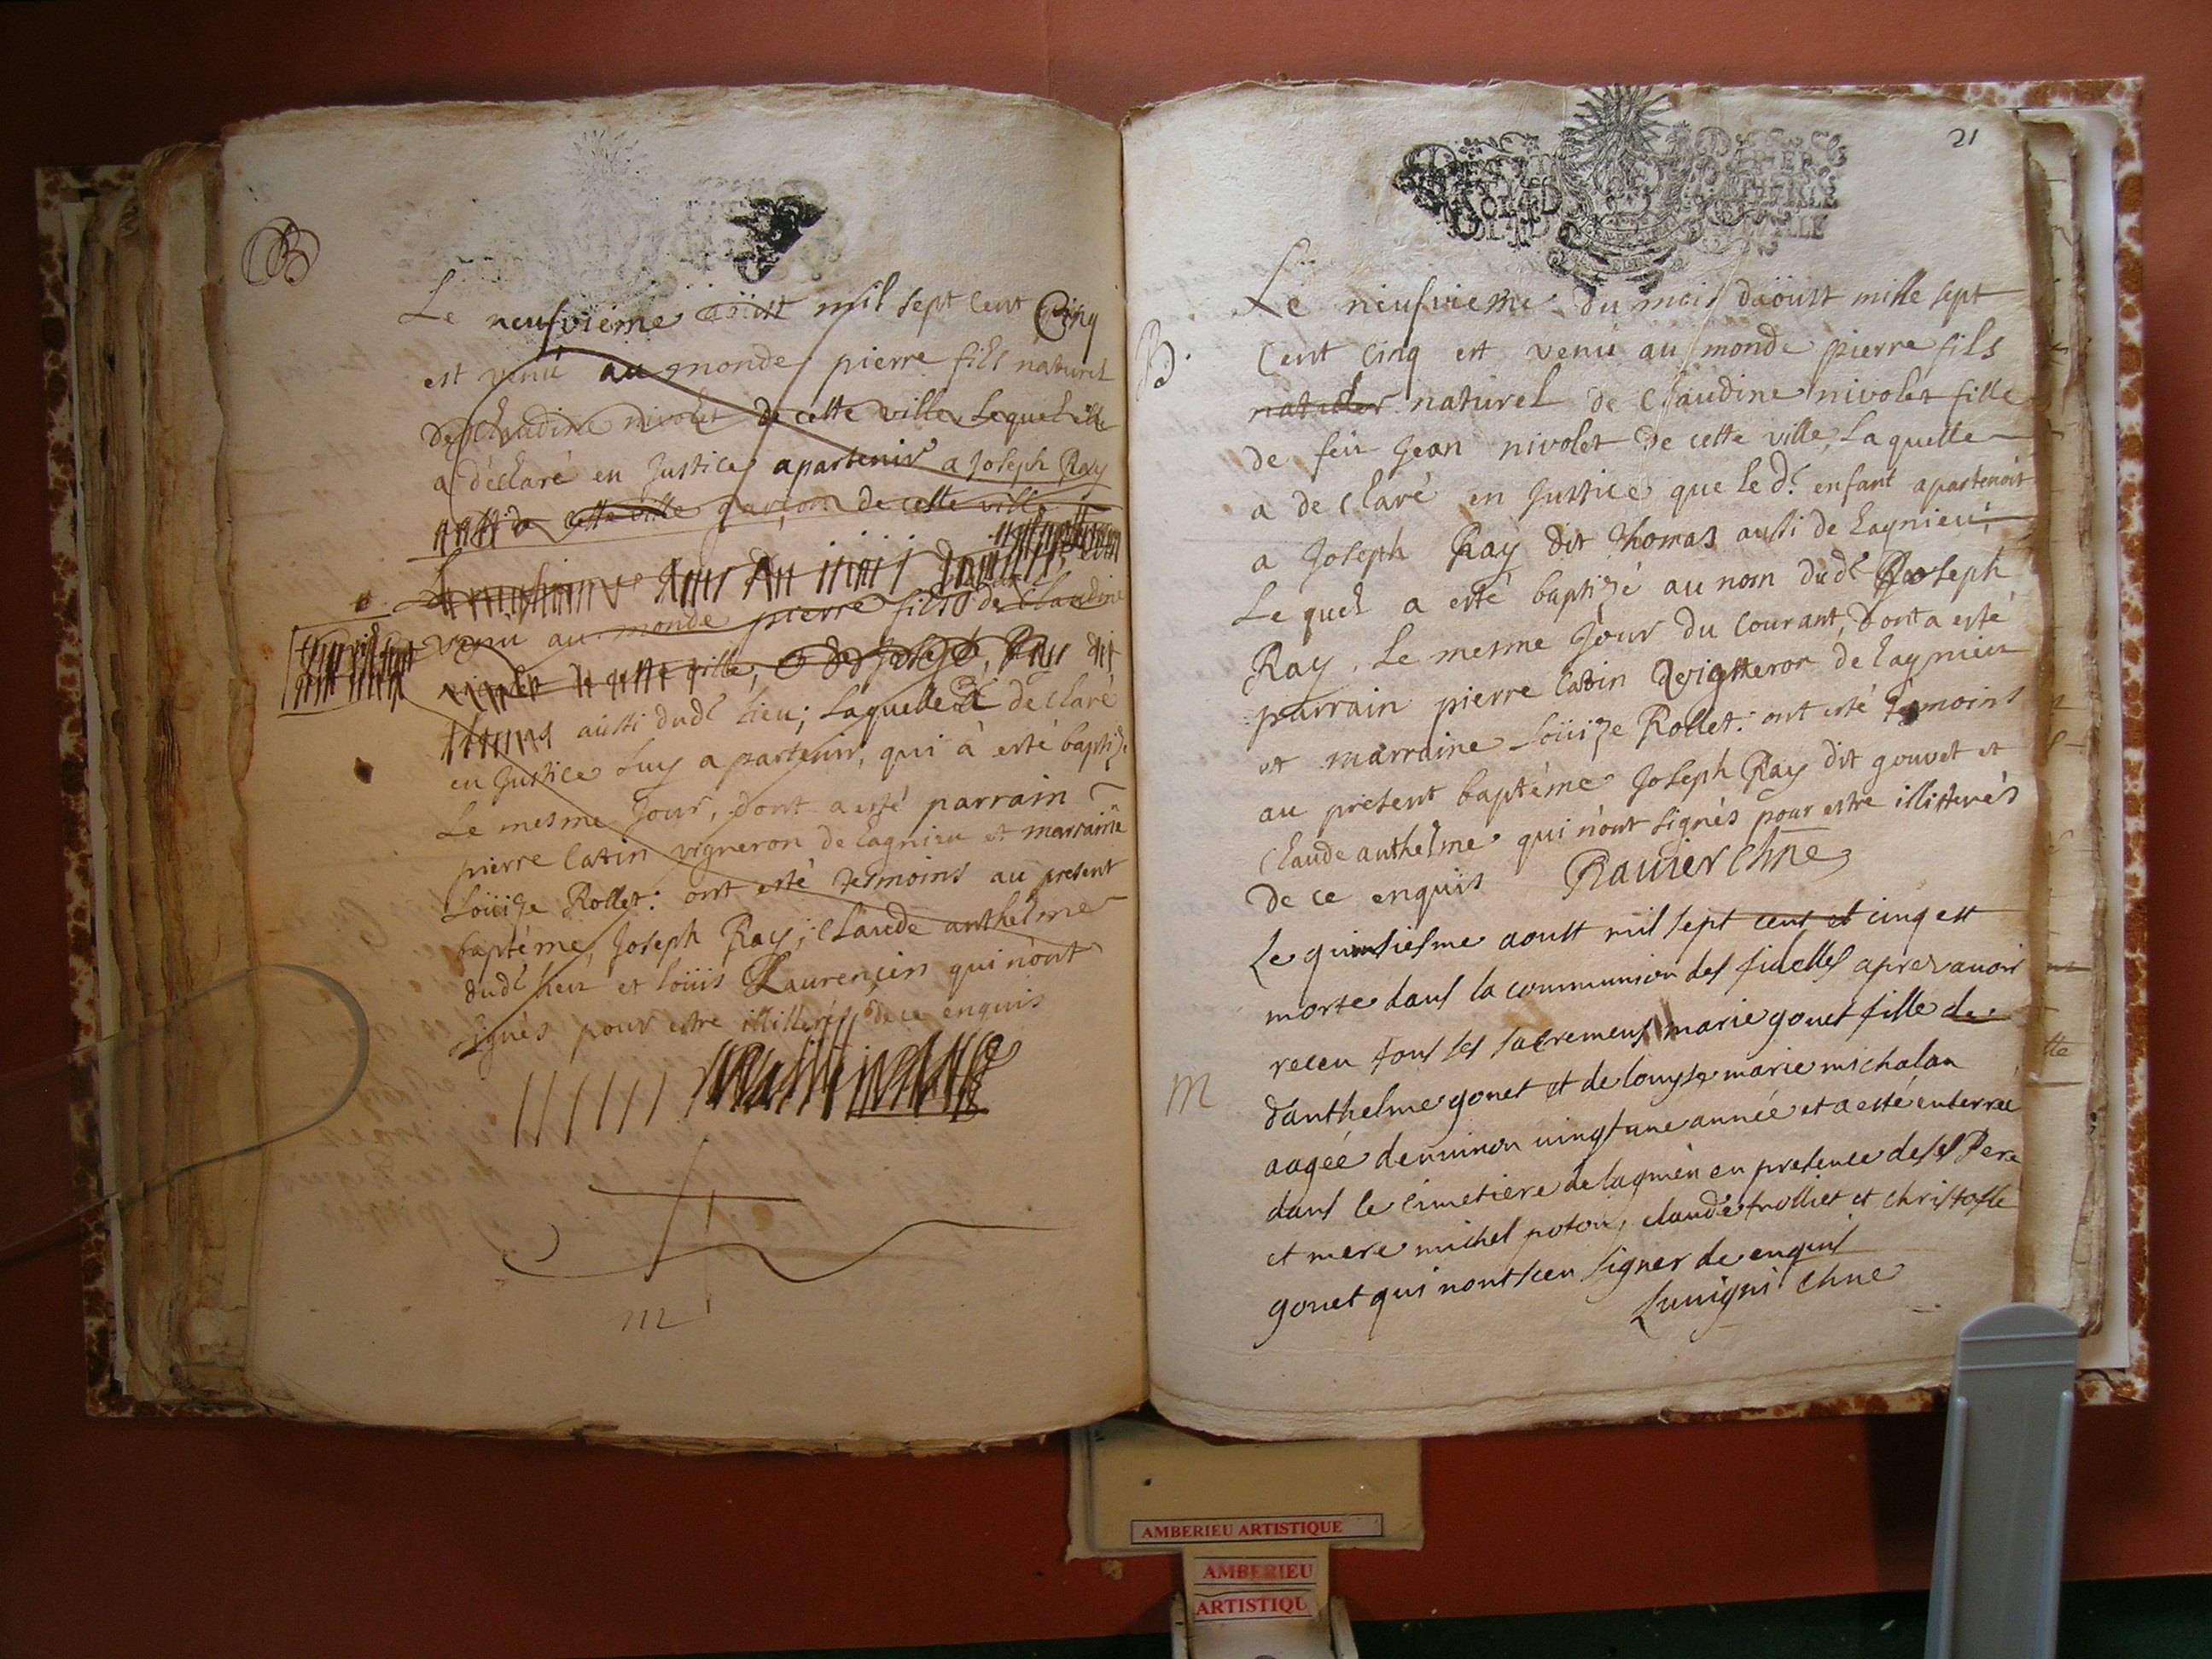 B
Le neufvieme aoüst mil sept Cent Cinq
est venu au monde pierre fils naturel
de Claudine nivolet de cette ville Lequel elle
a déclaré en Justice apartenir a Joseph Ray
de cette ville garçon de cette ville
venu au monde pierre fils de Claudine
de cette ville, Joseph Ray dit
thomas aussi dud.t Lieu; Laquelle a déclaré
en Justice Luy apartenir, qui à esté baptizé
Le mesme Jour, dont a esté parrain
pierre Catin vigneron de Lagnieu et marraine
Loüize Rollet: ont esté tesmoins au present
baptéme, Joseph Ray, Claude anthelme
dud.t Lieu et Loüis Laurencin qui n'ont
signés pour estre illitterés de ce enquis
m
21
B.
Le neufvieme du mois d'aoust mille sept
Cent Cinq est venu au monde pierre fils
naturel de Claudine nivolet fille
de feu Jean nivolet de cette ville, Laquelle
a declaré en Justice que Le d.t enfant apartenoit
a Joseph Ray dit thomas aussi de Lagnieu;
Le quel a esté baptizé au nom dud.t Joseph
Ray, Le mesme Jour du Courant, dont a esté
parrain pierre Catin vigneron de Lagnieu
et marraine Loüize Rollet: ont esté temoins
au present baptéme Joseph Ray dit gouvet et
Claude anthelme qui n'ont signés pour estre illitterés
de ce enquis Ravier
M
Le quinsiesme aoust mil sept cent et cinq est
morte dans la communion des fidelles apres avoir
receu tous les sacremens marie gonet fille de
d'anthelme gonet et de louyse marie michalan
aagée denviron vingt une année et a esté enterrée
dans le cimetiere de lagnieu en presence de ses Pere
et mere michel poton, claude trolliet et christofle
gonet qui n'ont sceu signer de enquis